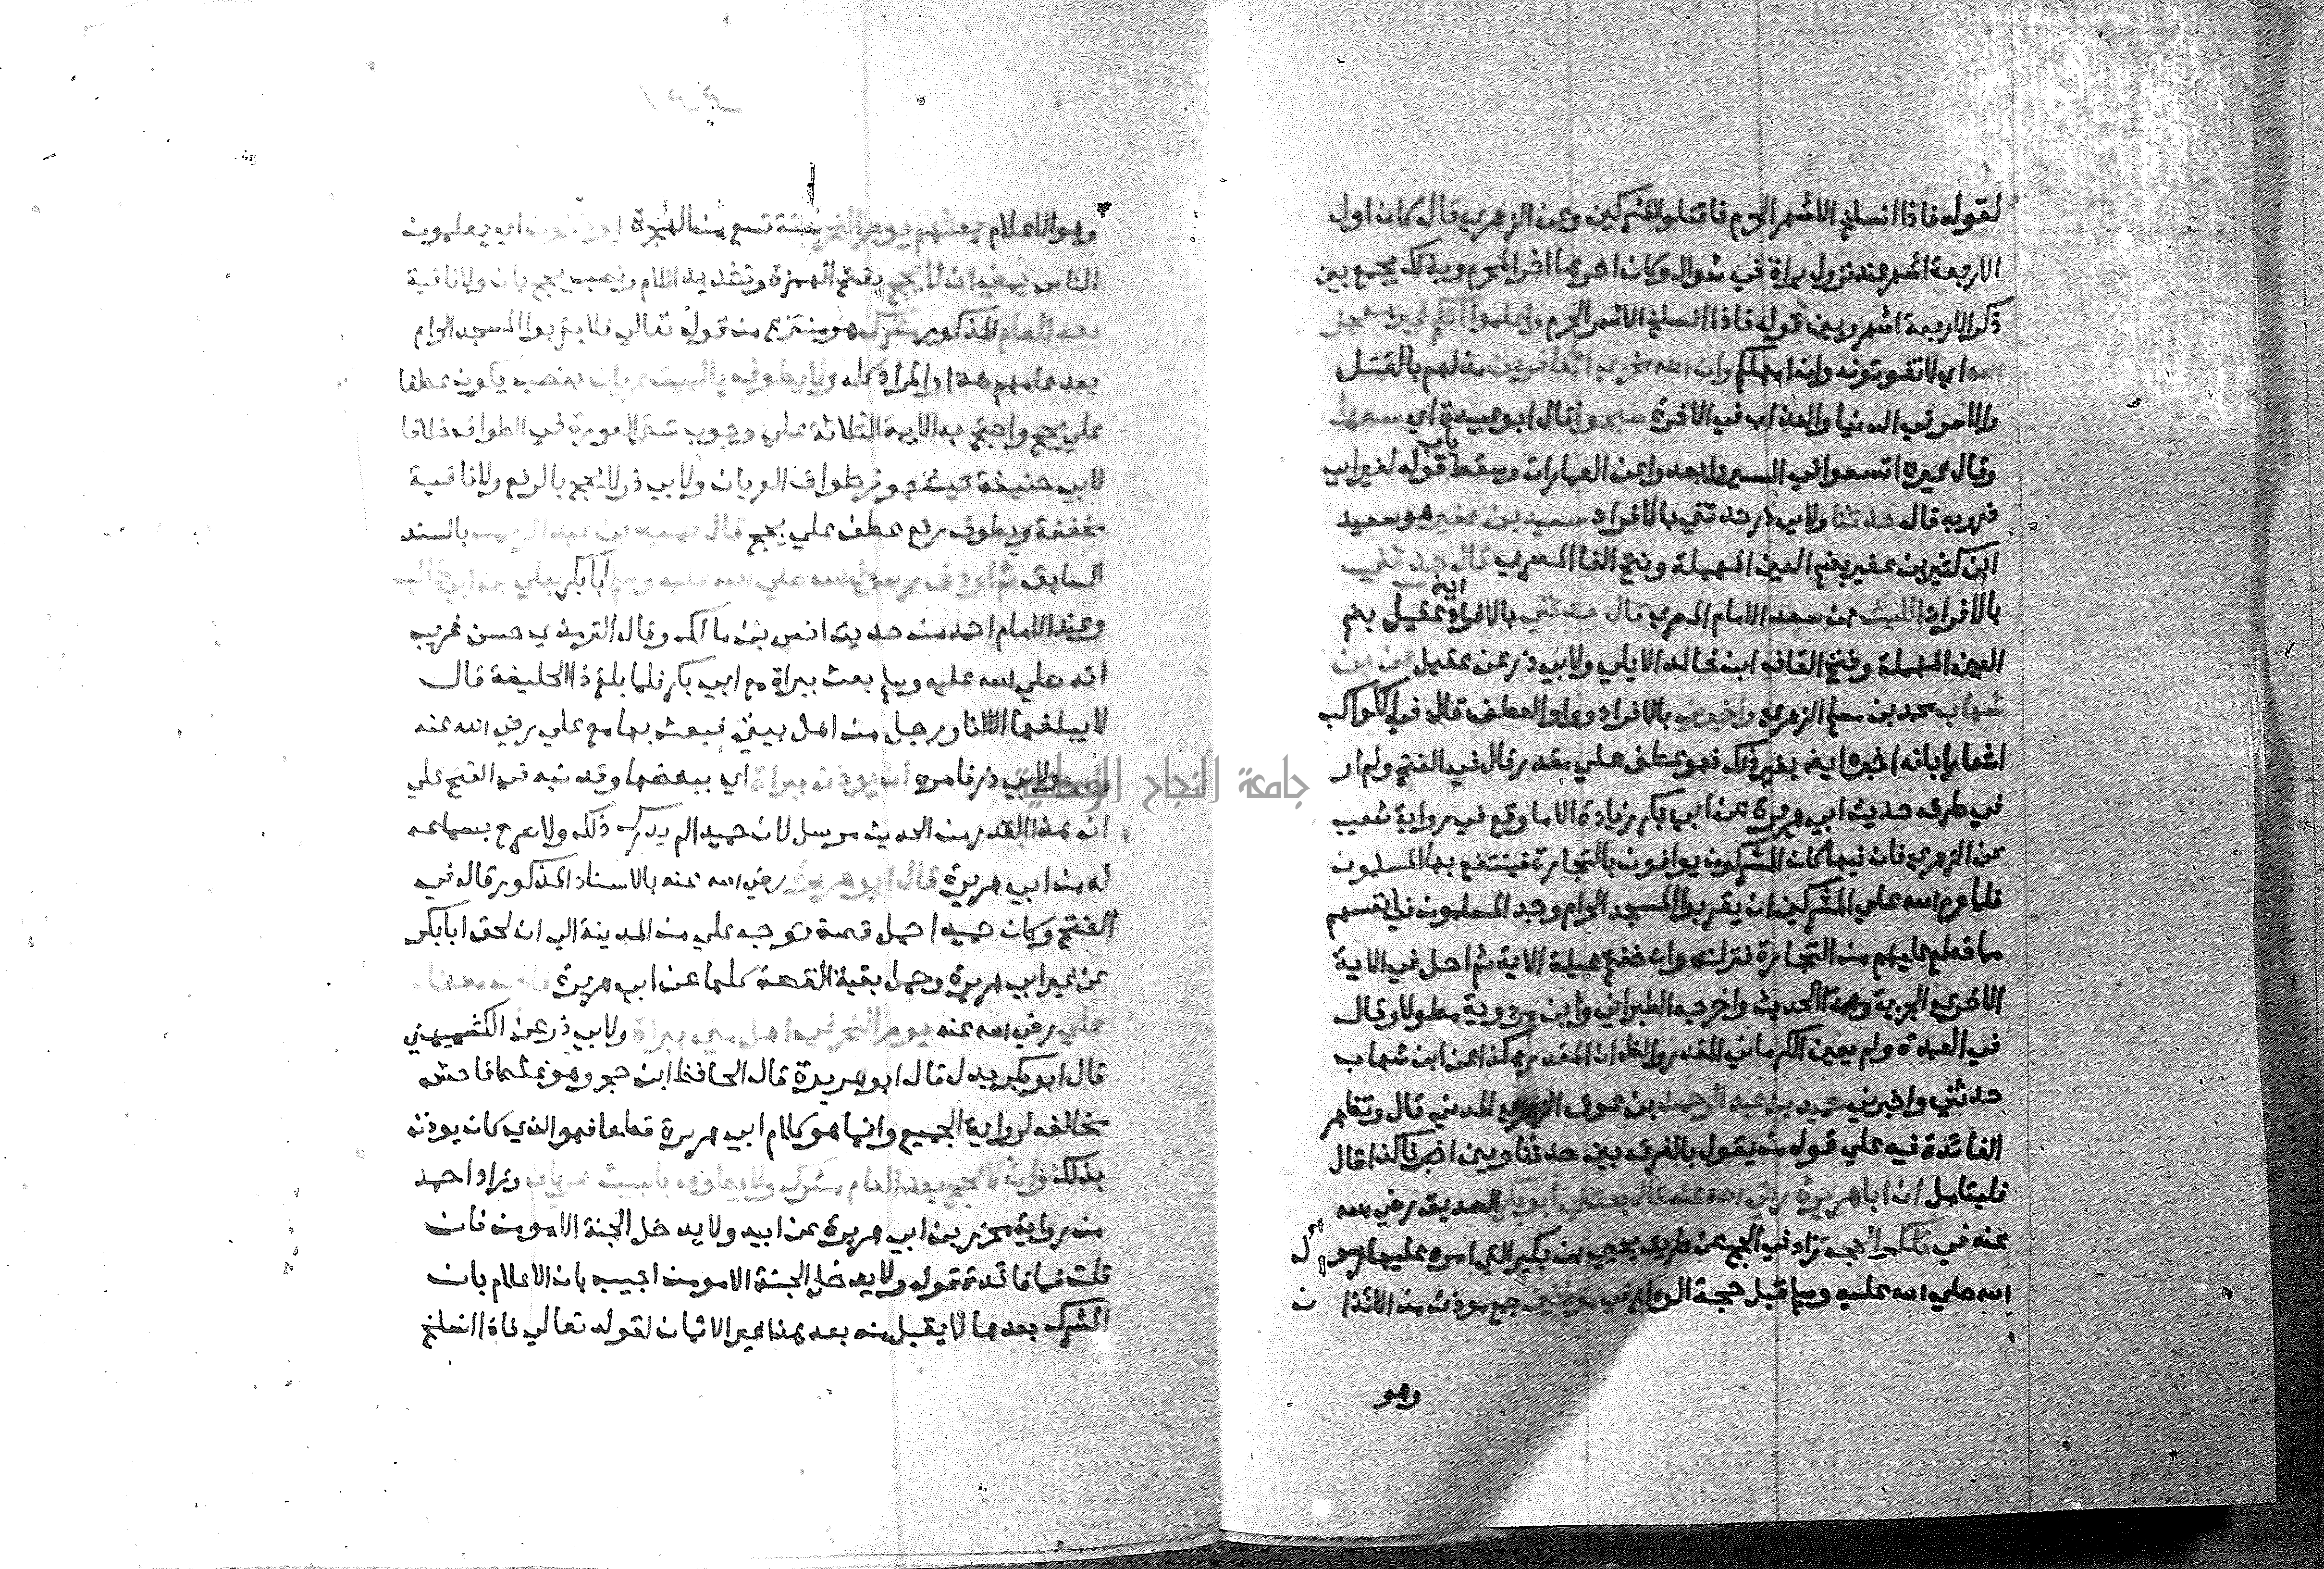 لقوله فاذا انسلخ الاشهر الحرم فاقتلوا المشركين وعن الزهري قال كان اول
الاربعة اشهر عند نزول براة في شوال وكان اخرها اخر المحرم وبذلك يجمع بين
ذكر الاربعة اشهر وبين قوله فاذا انسلخ الاشهر الحرم واعلموا انكم غير معجزي
الله اي لا تفوتونه وان امهلكم وان الله مخزي الكافرين مذلهم بالقتل
والاسر في الدنيا والعذاب في الاخرة سيحوا قال ابو عبيدة اي سيروا
وقال غيره اتسعوا في السير وابعدوا عن العمارات وسقط باب قوله لغير ابي
ذر وبه قال حدثنا ولابي ذر حدثني بالافراد سعيد بن عفير هو سعيد
ابن كثير بن عفير بضم العين المهملة وفتح الفا المصري قال حدثني
بالافراد الليث بن سعد الامام المصري قال حدثني بالافراد عقيل بضم
العين المهملة وفتح القاف ابن خالد الايلي ولابي ذر عن عقيل عن بن
شهاب محمد بن مسلم الزهري واخبرني بالافراد وواو العطف قال في الكواكب
اشعارا بانه اخبره ايضا بغير ذلك فهو عطف على مقدر قال في الفتح ولم ار
في طرق حديث ابي هريرة عن ابي بكر زيادة الا ما وقع في رواية شعيب
عن الزهري فان فيها كان المشركون يوافون بالتجارة فينتفع بها المسلمون
فلما حرم الله علي المشركين ان يقربوا المسجد الحرام وجد المسلمون في انفسهم
مما قطع عليهم من التجارة فنزلت وان خفتم عيلة الاية ثم احل في الاية
الاخري الجزية وهذا الحديث واخرجه الطبراني وابن مردوية مطولا وقال
في العمدة ولم يعين الكرماني المقدر والظا ان المقدر هكذا عن ابن شهاب
حدثني واخبرني حميد بن عبد الرحمن بن عوف الزهري المدني قال وتظهر
الفائدة فيه علي قول من يقول بالفرق بين حدثنا وبين اخبرنا كذا قال
فليتامل ان ابا هريرة رضي الله عنه قال بعثني ابو بكر الصديق رضي الله
عنه في تلك الحجة زاد في الحج من طريق يحيي بن بكير التي امره عليها رسول
الله صلي الله عليه وسلم قبل حجة الوداع في موذنين جمع موذن من الاذان
وهو
وهو الاعلام بعثهم يوم النحر سنة تسع من الهجرة يوذنون اي يعلمون
الناس بمني ان لا يحج بفتح الهمزة وتشديد اللام ونصب يحج بان ولا نافية
بعد العام المذكور مشرك هو منتزع من قوله تعالي فلا يقربوا المسجد الحرام
بعد عامهم هذا والمراد كله ولا يطوف بالبيت عريان بنصب يطوف عطفا
علي يحج واحتج به الايمة الثلاثة علي وجوب ستر العورة في الطواف خلافا
لابي حنيفة حيث جوز طواف العريان ولابي ذر لا يحج بالرفع ولا نافية
مخففة ويطوف رفع عطف علي يحج قال حميد بن عبد الرحمن بالسند
السابق ثم اردف رسول الله صلي الله عليه وسلم ابا بكر بعلي بن ابي طالب
وعند الامام احمد من حديث انس بن مالك وقال الترمذي حسن غريب
انه صلي الله عليه وسلم بعث ببراة مع ابي بكر فلما بلغ ذا الحليفة قال
لا يبلغها الا انا او رجل من اهل بيتي فبعث بها مع علي رضي الله عنه
ولابي ذر فامره ان يوذن ببراة اي ببعضها وقد نبه في الفتح علي
ان هذا القدر من الحديث مرسل لان حميدا لم يدرك ذلك ولا صرح بسماعه
له من ابي هريرة قال ابو هريرة رضي الله عنه بالاسناد المذكور قال في
الفتح وكان حميدا حمل قصة توجه علي من المدينة الي ان لحق ابا بكر
عن غير ابي هريرة وحمل بقية القصة كلها عن ابي هريرة فاذن معنا
علي رضي الله عنه يوم النحر في اهل مني ببراة ولابي ذر عن الكشميهني
قال ابو بكر بدل قال ابو هريرة قال الحافظ ابن حجر وهو غلط فاحش
مخالف لرواية الجميع وانما هو كلام ابي هريرة قطعا فهو الذي كان يوذن
بذلك وان لا يحج بعد العام مشرك ولا يطوف بالبيت عريان وزاد احمد
من رواية محرز بن ابي هريرة عن ابيه ولا يدخل الجنة الا مومن فان
قلت فما فائدة قوله ولا يدخل الجنة الا مومن اجيب بان الاعلام بان
المشرك بعدها لا يقبل منه بعد هذا غير الايمان لقوله تعالي فاذا انسلخ
جامعة النجاح الوطنية